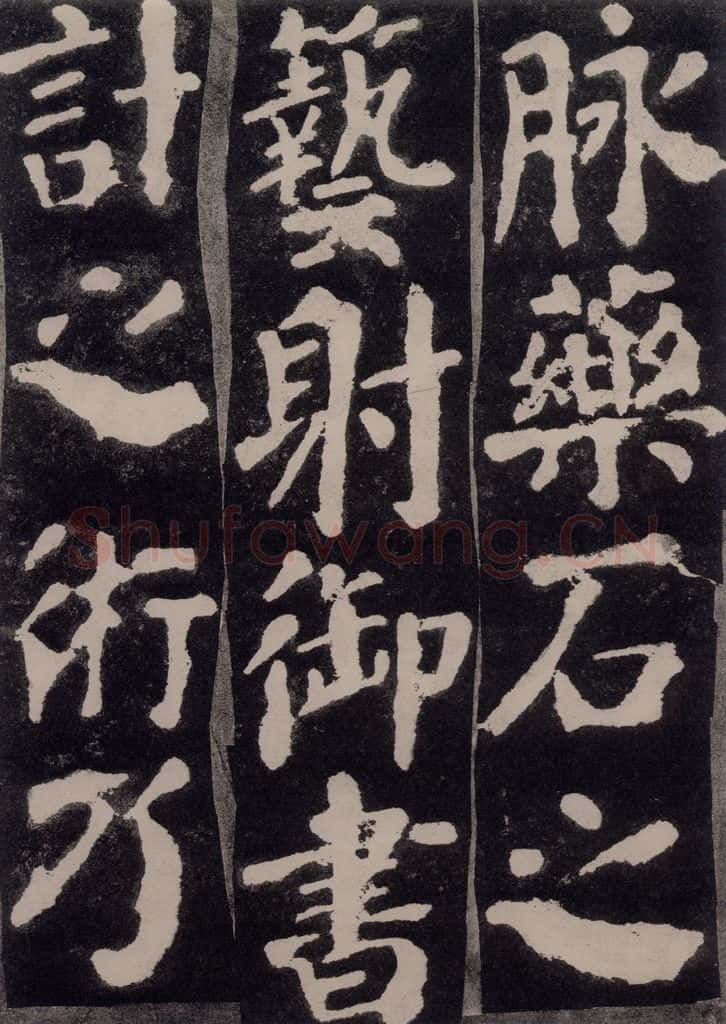 脉藥石之
藝射御書
計之術乃
Shufawang.CN